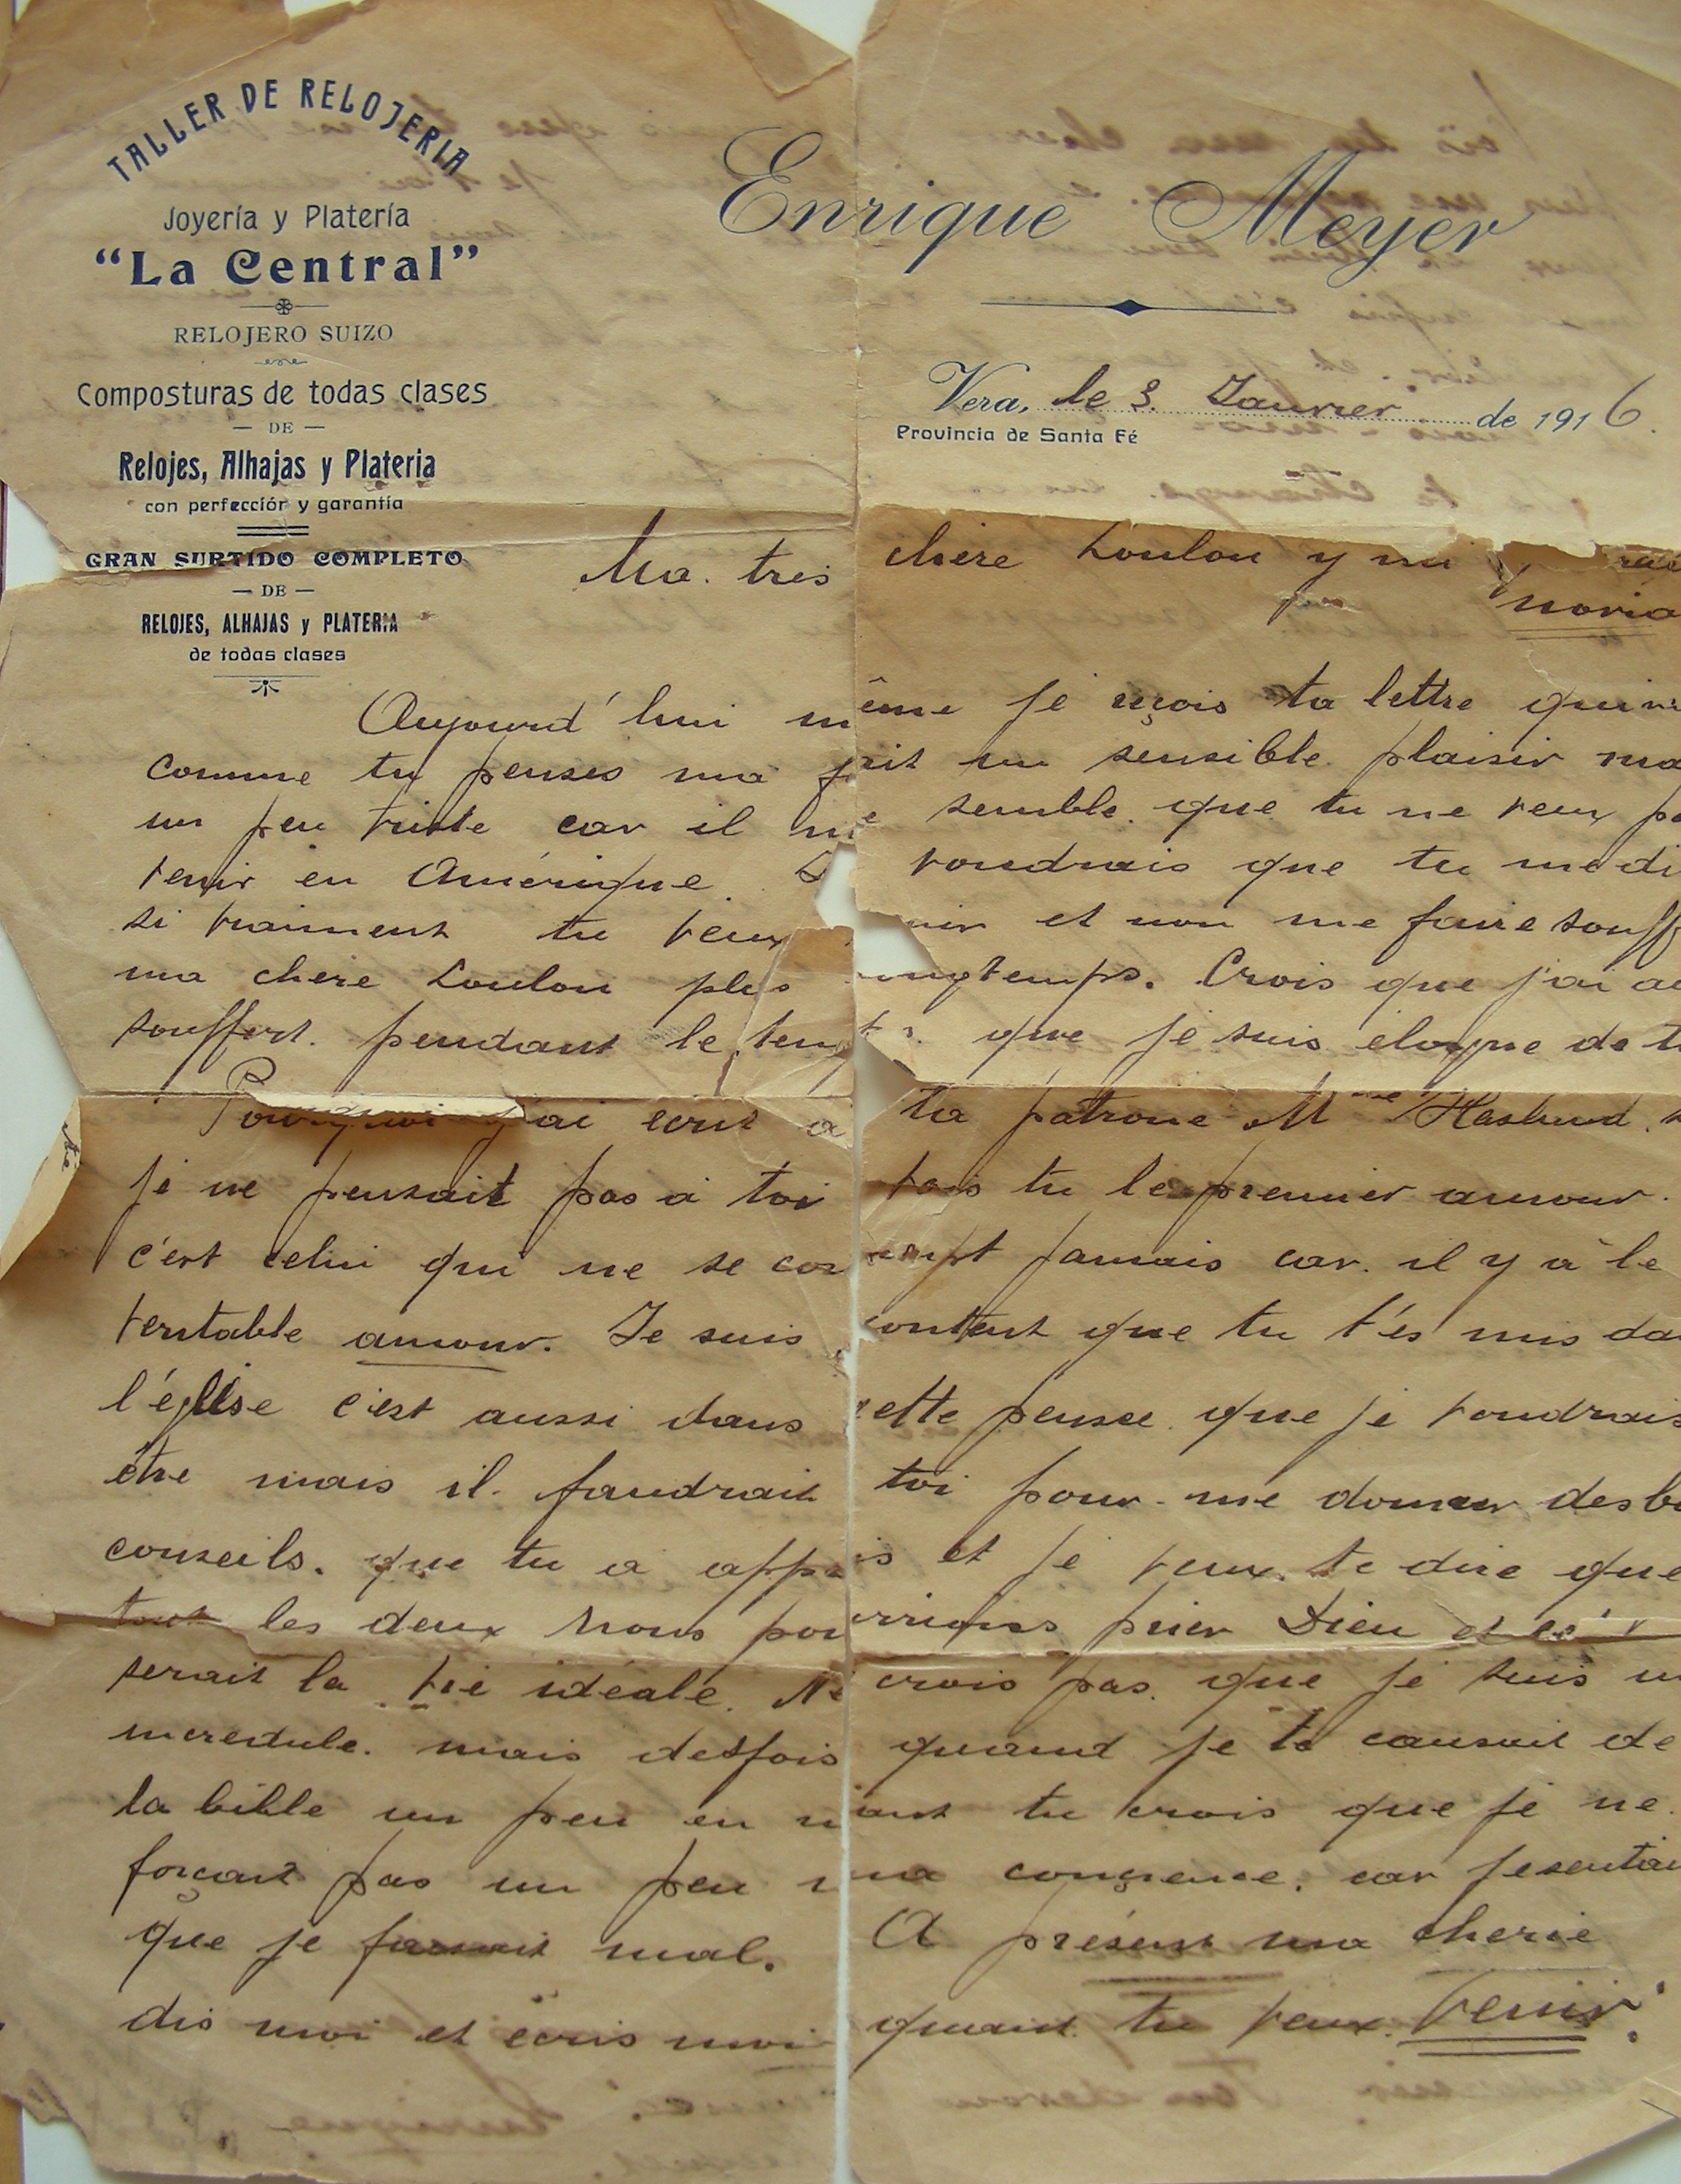 TALLER DE RELOJERIA
Joyería y Platería
"La Central"
RELOJERO SUIZO
Composturas de todas clases
— DE —
Relojes, Alhajas y Plateria
con perfección y garantía
GRAN SURTIDO COMPLETO
— DE —
RELOJES, ALHAJAS y PLATERIA
de todas clases
Enrique Meyer
Vera, le 3. Janvier de 1916.
Provincia de Santa Fé
Ma. tres chere Loulou y mi
novia
Aujourd'hui même je reçois ta lettre qui
comme tu penses ma fait un sensible plaisir
un peu triste car il me semble. que tu ne veux
venir en Amérique. voudrais que tu me
si vraiment tu veux et non me faire
ma chere Loulou plus longtemps. Crois que j'ai
souffert. pendant le temps. que je suis eloigne de
Pourquoi j'ai ecrit a ta patrone Mme
je ne pensait pas a toi vois tu le premier amour.
c'est celui qui ne se jamais car. il y à le
veritable amour. Je suis content que tu t'és mis
l'église c'est aussi dans cette pensee que je voudrais
être mais il. faudrait toi pour. me donner
conseils. que tu a appris et je veux. te dire que
tout les deux nous pourrions prier Dieu et
serait la vie idéale. Ne crois pas. que je suis
incredule. mais desfois quand je te causait de
la bible un peu en riant tu crois que je ne.
forçait pas un peu ma consçience. car je
que je faisait mal. A présent ma cherie
dis moi et ecris moi quand. tu veux. Venir.